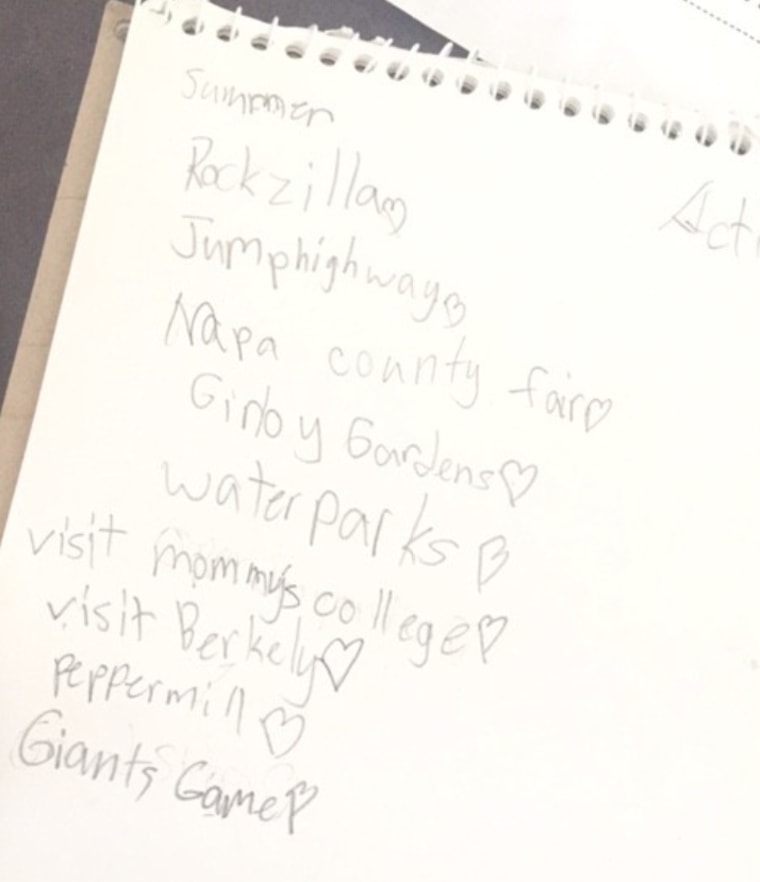 Summer
Rockzilla♡
Jumphighway♡
Napa county fair♡
Girlby Gardens♡
waterparks♡
visit mommy's college♡
visit Berkely♡
Peppermill♡
Giants Game♡
Acti